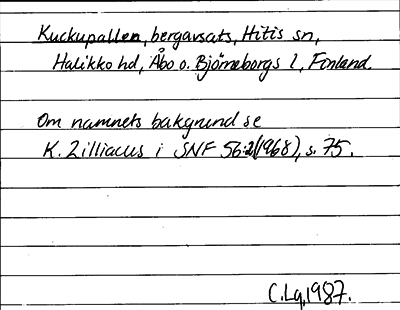 Kuckupallen, bergavsats, Hitis sn,
Halikko hd, Åbo o. Björneborgs l, Finland.
Om namnets bakgrund se
K. Zilliacus i SNF 56:2(1968), s. 75.
C. Lg, 1987.